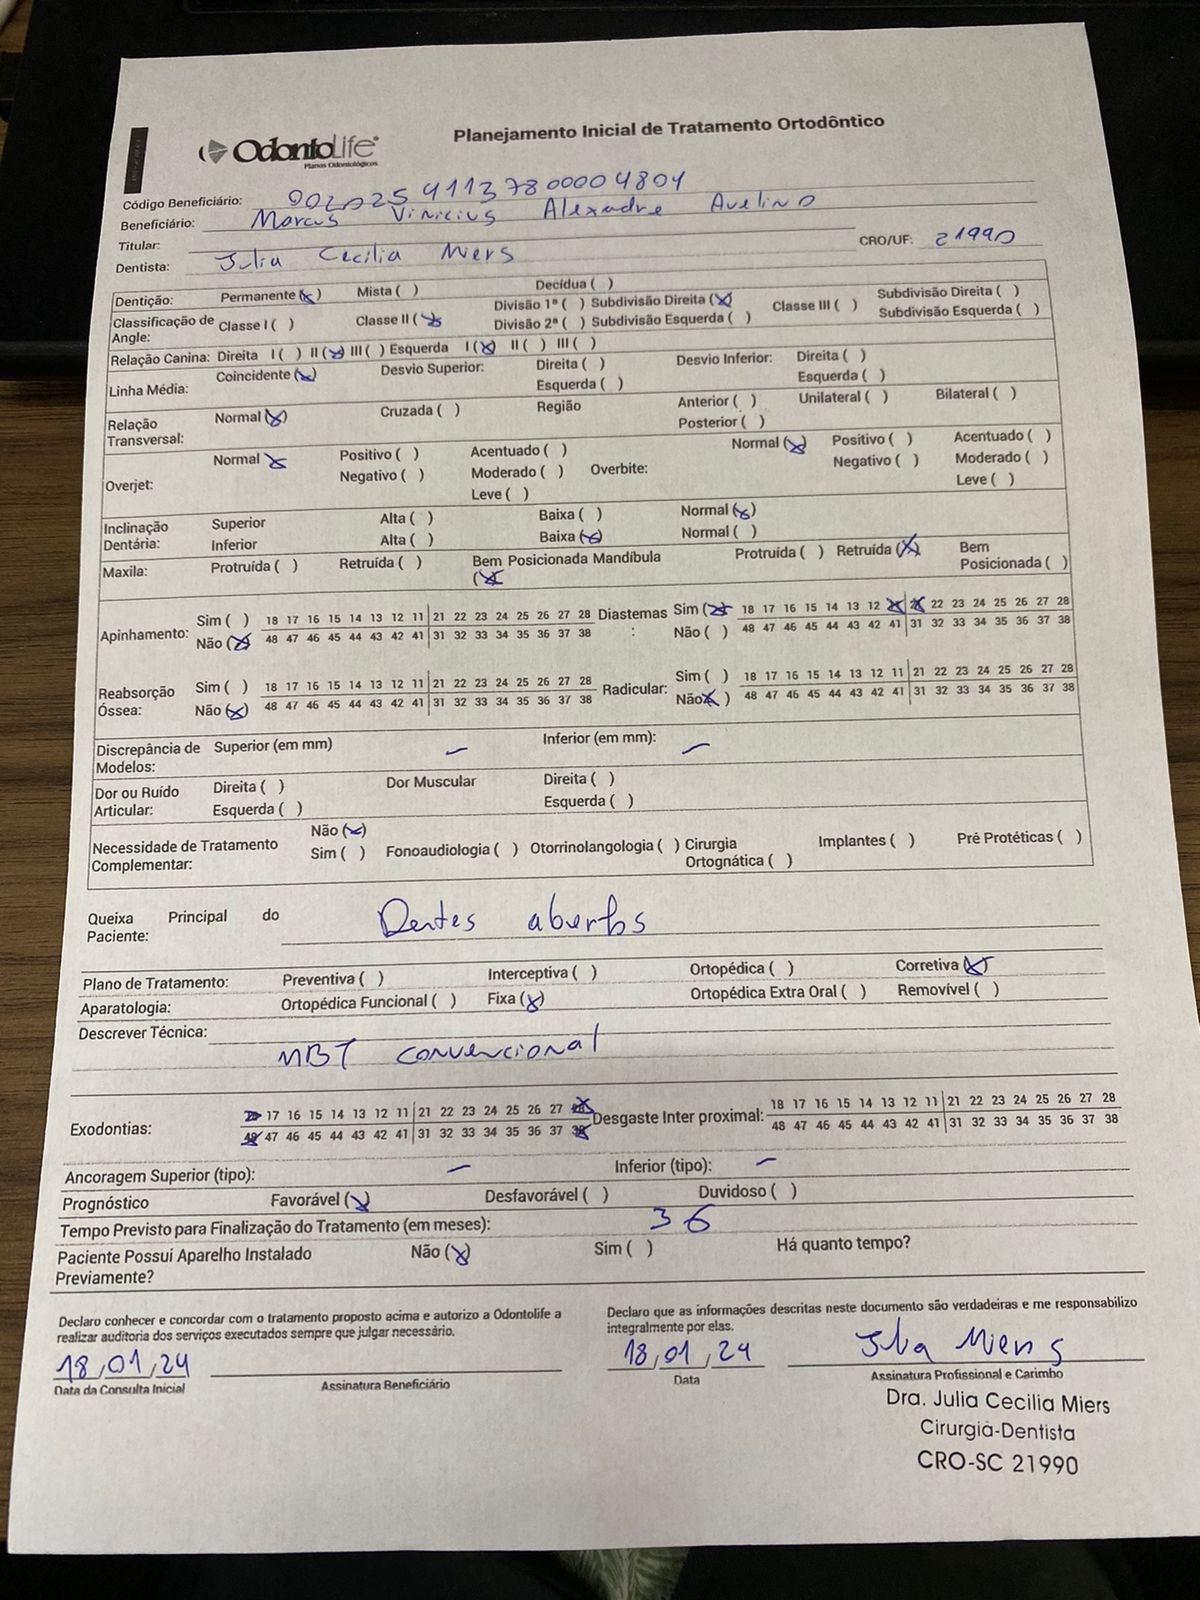 OdontoLife
Planos Odontológicos
Planejamento Inicial de Tratamento Ortodôntico
Código Beneficiário: 00202541137800004804
Beneficiário: Marcus Vinicius Alexadre Avelino
Titular:
Dentista: Julia Cecilia Miers CRO/UF: 21990
Dentição: Permanente (x) Mista ( ) Decídua ( )
Classificação de Angle: Classe I ( ) Classe II (x) Divisão 1ª ( ) Subdivisão Direita (x) Classe III ( ) Subdivisão Direita ( )
Divisão 2ª ( ) Subdivisão Esquerda ( ) Subdivisão Esquerda ( )
Relação Canina: Direita I ( ) II (x) III ( ) Esquerda I (x) II ( ) III ( )
Linha Média: Coincidente (x) Desvio Superior: Direita ( ) Desvio Inferior: Direita ( )
Esquerda ( ) Esquerda ( )
Relação Transversal: Normal (x) Cruzada ( ) Região Anterior ( ) Unilateral ( ) Bilateral ( )
Posterior ( )
Overjet: Normal (x Positivo ( ) Acentuado ( ) Overbite: Normal (x) Positivo ( ) Acentuado ( )
Negativo ( ) Moderado ( ) Negativo ( ) Moderado ( )
Leve ( ) Leve ( )
Inclinação Dentária: Superior Alta ( ) Baixa ( ) Normal (x)
Inferior Alta ( ) Baixa (x) Normal ( )
Maxila: Protruída ( ) Retruída ( ) Bem Posicionada (x Mandíbula Protruída ( ) Retruída (x) Bem Posicionada ( )
Apinhamento: Sim ( ) 18 17 16 15 14 13 12 11 21 22 23 24 25 26 27 28 Diastemas: Sim (x) 18 17 16 15 14 13 12 x x 22 23 24 25 26 27 28
Não (x) 48 47 46 45 44 43 42 41 31 32 33 34 35 36 37 38 Não ( ) 48 47 46 45 44 43 42 41 31 32 33 34 35 36 37 38
Reabsorção Óssea: Sim ( ) 18 17 16 15 14 13 12 11 21 22 23 24 25 26 27 28 Radicular: Sim ( ) 18 17 16 15 14 13 12 11 21 22 23 24 25 26 27 28
Não (x) 48 47 46 45 44 43 42 41 31 32 33 34 35 36 37 38 Não (x) 48 47 46 45 44 43 42 41 31 32 33 34 35 36 37 38
Discrepância de Modelos: Superior (em mm) – Inferior (em mm): –
Dor ou Ruído Articular: Direita ( ) Dor Muscular Direita ( )
Esquerda ( ) Esquerda ( )
Necessidade de Tratamento Complementar: Não (x)
Sim ( ) Fonoaudiologia ( ) Otorrinolangologia ( ) Cirurgia Ortognática ( ) Implantes ( ) Pré Protéticas ( )
Queixa Principal do Paciente: Dentes abertos
Plano de Tratamento: Preventiva ( ) Interceptiva ( ) Ortopédica ( ) Corretiva (x)
Aparatologia: Ortopédica Funcional ( ) Fixa (x) Ortopédica Extra Oral ( ) Removível ( )
Descrever Técnica:
MBT convencional
Exodontias: 18 17 16 15 14 13 12 11 21 22 23 24 25 26 27 28 Desgaste Inter proximal: 18 17 16 15 14 13 12 11 21 22 23 24 25 26 27 28
48 47 46 45 44 43 42 41 31 32 33 34 35 36 37 38 48 47 46 45 44 43 42 41 31 32 33 34 35 36 37 38
Ancoragem Superior (tipo): – Inferior (tipo): –
Prognóstico Favorável (x) Desfavorável ( ) Duvidoso ( )
Tempo Previsto para Finalização do Tratamento (em meses): 36
Paciente Possui Aparelho Instalado Previamente? Não (x) Sim ( ) Há quanto tempo?
Declaro conhecer e concordar com o tratamento proposto acima e autorizo a Odontolife a
realizar auditoria dos serviços executados sempre que julgar necessário.
18/01/24
Data da Consulta Inicial Assinatura Beneficiário
Declaro que as informações descritas neste documento são verdadeiras e me responsabilizo
integralmente por elas.
18/01/24 Julia Miers
Data Assinatura Profissional e Carimbo
Dra. Julia Cecilia Miers
Cirurgiã-Dentista
CRO-SC 21990